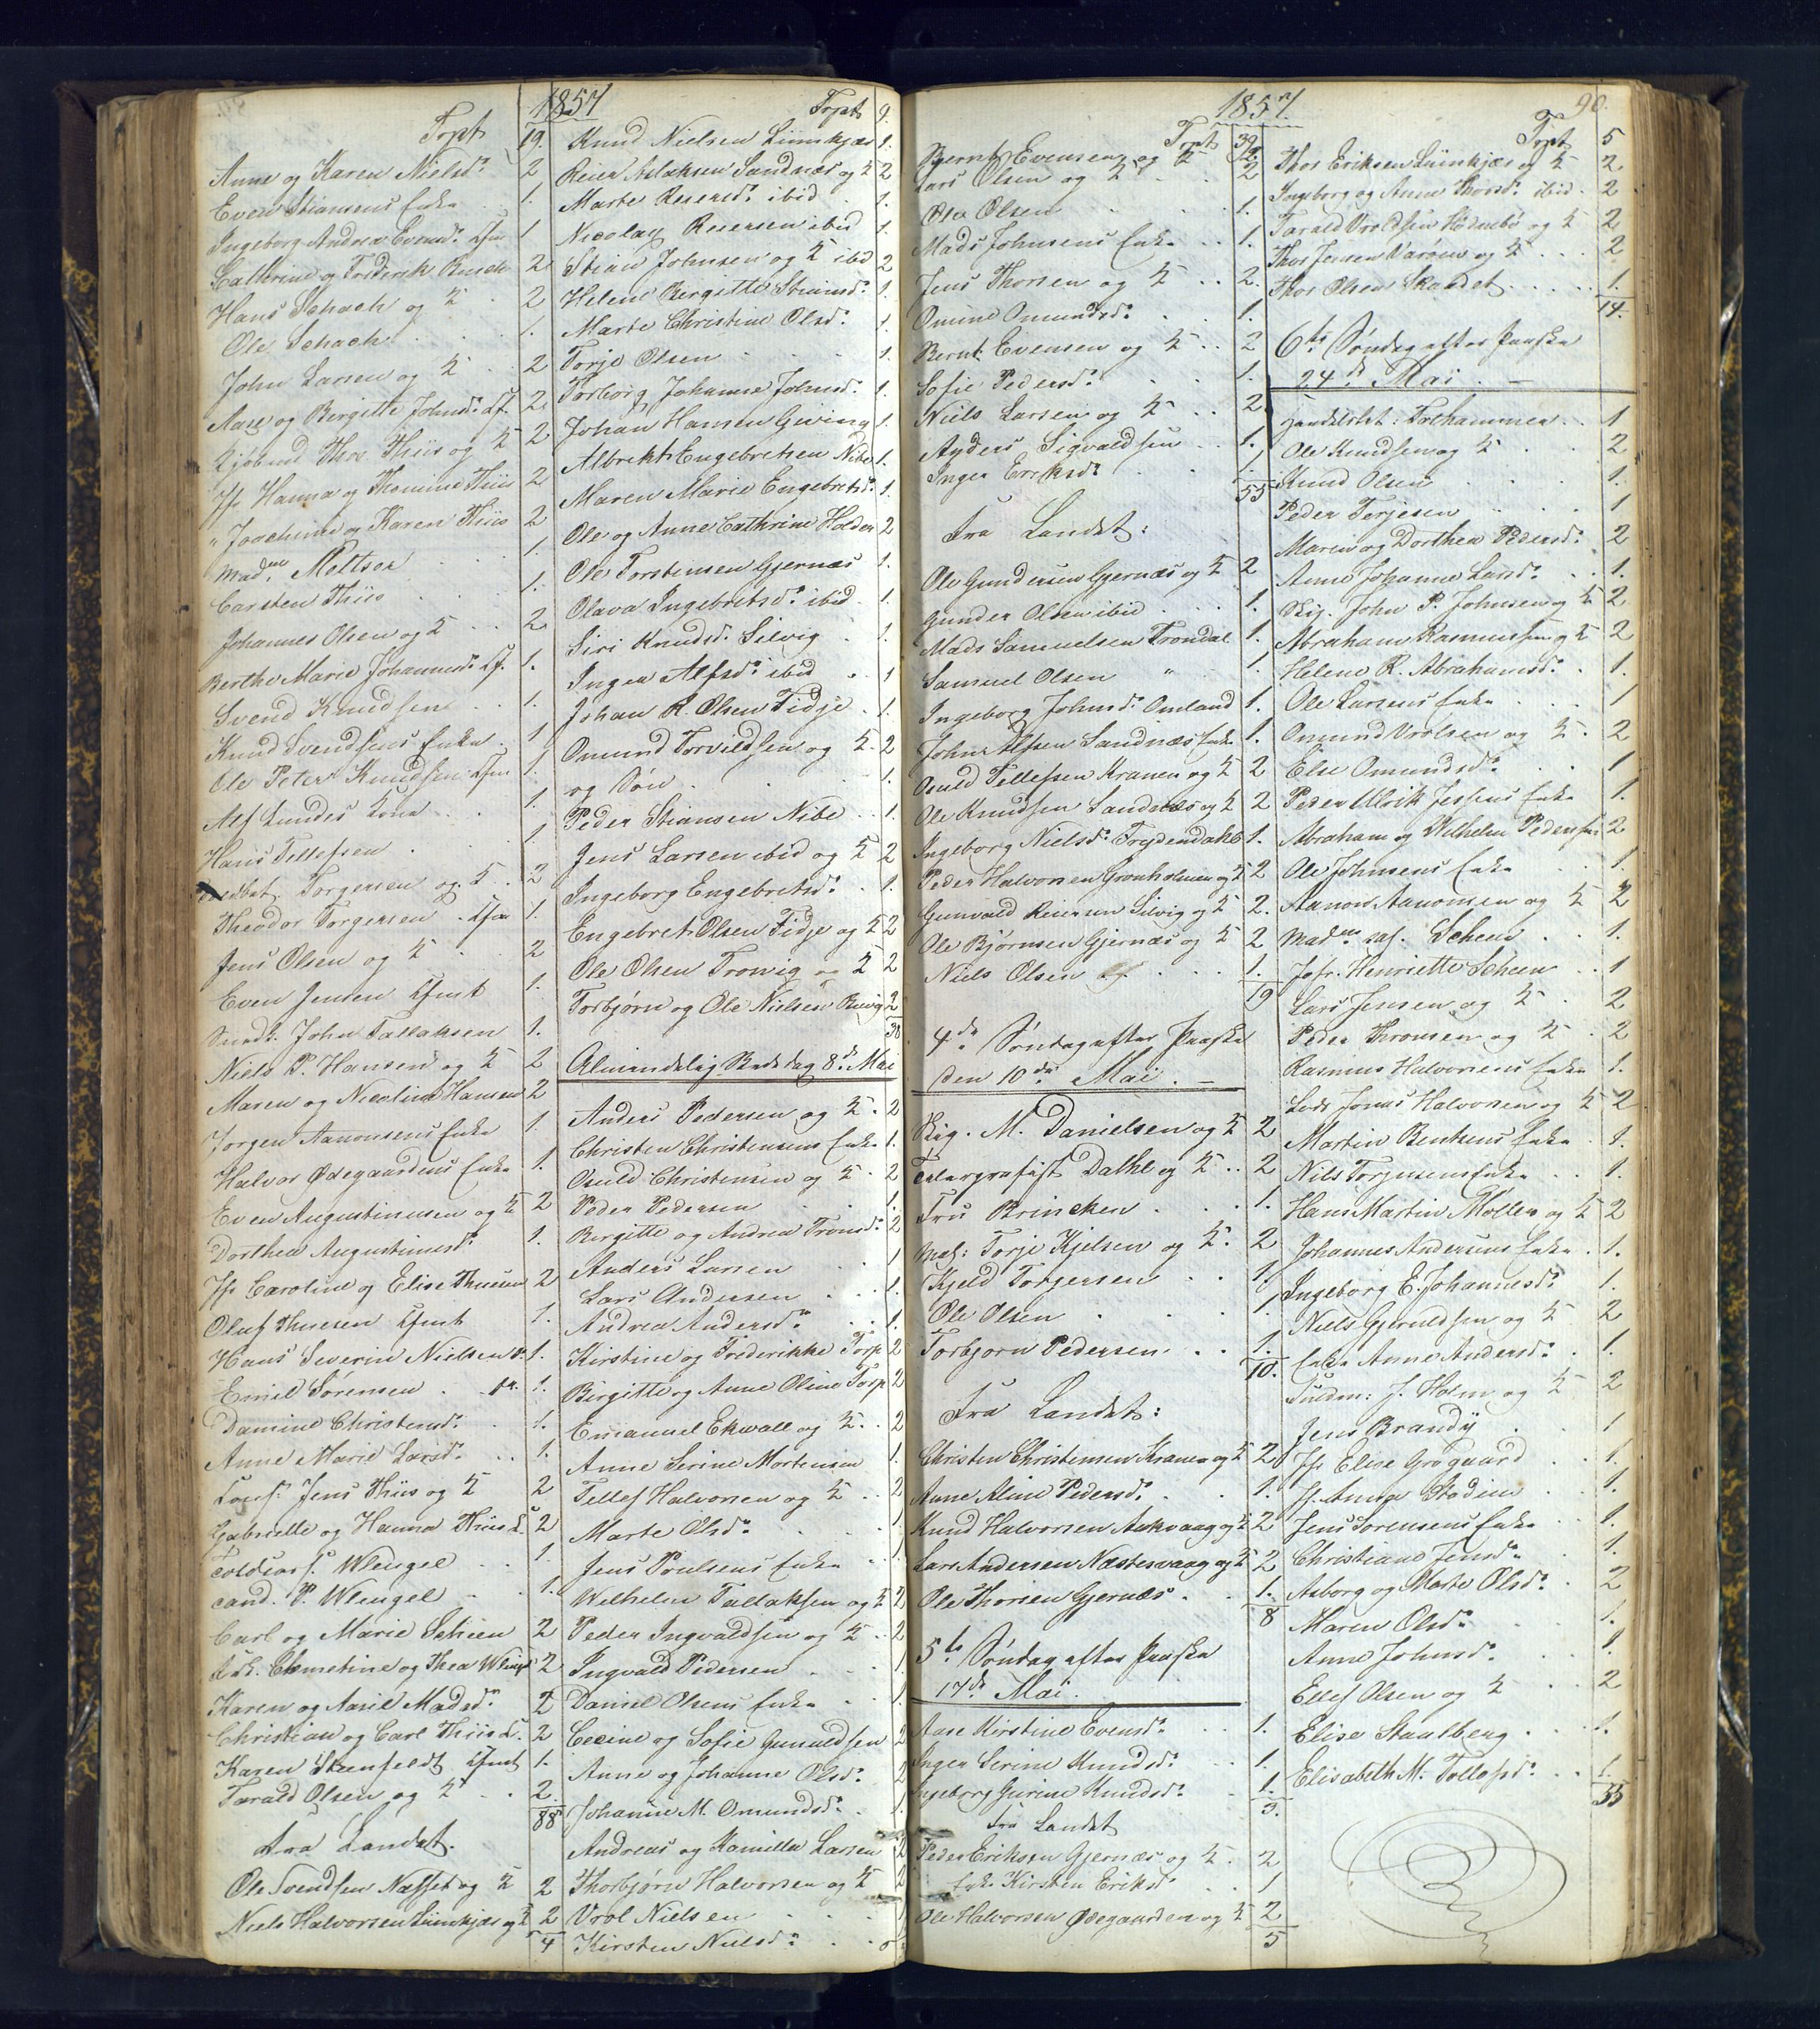 1857.
Trpt 19.
Anne og Karen Nielsd. 2
Even Stiansens Enke 1.
Ingeborg Andrea Evensd. Cfm 1
Cathrine og Frederik Busch 2
Hans Schach og K 2
Ole Schach 1.
John Larsen og K 2
Aase og Birgitte Johnsd. Cf. 2
Kjøbmd Thor Thiis og K 2
Jfr Hanna og Thomine Thiis 2
" Joachime og Karen Thiis 2
Madme Meltser 1.
Carsten Thiis 1.
Johannes Olsen og K 2
Berthe Marie Johannesd. Cf. 1.
Svend Knudsen 1.
Knud Svendsens Enke 1
Ole Peter Knudsen Cfm 1.
Alf Lundes Kone 1.
Hans Tellefsen 1.
Torgersen og K 2
Theodor Torgersen Cfm 1.
Jens Olsen og K 2
Even Jensen Cfmt 1.
Snedk. John Tallaksen 1.
Niels P. Hansen og K 2
Maren og Nicoline Hansen 2
Jørgen Aanonsens Enke 1
Halvor Ødegaardens Enke 1.
Even Augustinusen og K 2
Dorthea Augustinusd. 1.
Jfr Caroline og Elise Thuesen 2
Oluf Thuesen Cfmt 1.
Hans Severin Nielsen 1.
Emil Sørensen 1.
Damine Christensd. 1.
Anne Marie Larsd. 1.
Consf. Jens Thiis og K 2
Gabrielle og Hanna Thiis 2
Toldcass. Wleugel 1.
cand. P. Wleugel 1.
Carl og Marie Schien 2
Clemetine og Thea Wleugel 2
Karen og Aasil Madsd. 2
Christian og Carl Thiis 2
Karen Steenfeldt Cfmt 1.
Tarald Olsen og K 2.
88
Fra Landet.
Ole Svendsen Næsset og K 2
Niels Halvorsen Lunkjær og K 2
4
Trpt 9.
Knud Nielsen Lunkjær 1.
Reier Aslaksen Sandnæs og K 2
Marte Reiersd. ibid 1.
Nicolay Reiersen ibid 1.
Stian Johnsen og K ibid 2
Helene Birgitte Stiansd. 1.
Marte Christine Olsd. 1.
Torje Olsen 1.
Torborg Johanne Johnsd. 1.
Johan Hansen Gwing 1.
Albrekt Engebretsen Nibe 1.
Maren Marie Engebretsd. 1.
Ole og Anne Cathrine Holden 2
Ole Torstensen Gjernæs 1.
Olava Ingebretsd. ibid 1.
Siri Knudsd. Silvig 1.
Inger Alfsd. ibid 1
Johan R. Olsen Fidje 1.
Omund Torvildsen og K 2
og Søn 1.
Peder Stiansen Nibe 1.
Jens Larsen ibid og K 2
Ingeborg Engebretsd. 1.
Engebret Olsen Fidje og K 2
Ole Olsen Tronvig og K 2
Torbjørn og Ole Nielsen 2
Almindelig Bededag 8de Mai
Anders Pedersen og K 2
Christen Christensens Enke 1.
Osuld Christensen og K 2
Peder Pedersen 1.
Birgitte og Andrea Tronsd. 2
Anders Larsen 1
Lars Andersen 1.
Andrea Andersd. 1.
Kirstine og Frederikke Torp 2
Birgitte og Anne Oline Torp 2
Emanuel Ekwall og K 2
Anne Serine Mortensen 1.
Tellef Halvorsen og K 2
Marte Olsd. 1
Jens Poulsens Enke 1
Wilhelm Tallaksen og K 2
Peder Ingvaldsen og K 2
Ingvald Pedersen 1
Daniel Olsens Enke 1
Cecine og Sofie Gunuldsen 2
Anne og Johanne Olsd. 2
Johanne M. Omundsd. 1
Andreas og Kamilla Larsen 2
Thorbjørn Halvorsen og K 2
Vrol Nielsen 1
Kirsten Nielsd.
1857. 90.
Trpt 39
Bernt Evensen og K 2
Lars Olsen og K 2
Ole Olsen 1.
Mads Johnsens Enke 1.
Jens Thorsen og K 2.
Omine Omundsd. 1.
Bernt Evensen og K 2
Sofie Pedersd. 1.
Niels Larsen og K 2
Anders Sigvaldsen 1.
Inger Eriksd. 1.
55
Fra Landet:
Ole Gundersen Gjernæs og K 2
Gunder Olsen ibid 1.
Mads Samuelsen Trondal 1.
Samuel Olsen " 1.
Ingeborg Johnsd. Omland 1.
John Alfsen Sandnæs Enke 1.
Osuld Tellefsen Kranen og K 2
Ole Knudsen Sandnæs og K 2
Ingeborg Nielsd. Frydendahl 1.
Peder Halvorsen Gronholmen og K 2
Gunvald Reiersen Silvig og K 2.
Ole Bjørnsen Gjernæs og K 2
Niels Olsen 1.
19
4de Søndag efter Paaske
den 10de Mai.
Skig. M. Danielsen og K 2
Telegrafist Dalhl og K 2
Fru Brincken 1.
Mal: Torje Kjelsen og K 2
Kjeld Torgersen 1.
Ole Olsen 1
Torbjorn Pedersen 1.
10.
Fra Landet:
Christen Christensen Kranen og K 2
Anne Aline Pedersd. 1.
Knud Halvorsen Aakvaag og K 2
Lars Andersen Næstesvaag og K 2
Ole Thorsen Gjernæs 1.
8
5te Søndag efter Paaske
17de Mai.
Aase Kirstine Evensd. 1.
Inger Serine Knudsd. 1.
Ingeborg Gurine Knudsd. 1.
3.
Fra Landet
Peder Eriksen Gjernæs og K 2
Enke Kirsten Eriksd. 1
Ole Halvorsen Ødegaarden og K 2
5
Trpt 5
Thor Eriksen Lunkjær og K 2
Ingeborg og Anne Thorsd. ibid 2
Tarald Vroldsen Hødnebø og K 2
Thor Jensen Varøen og K 2
Thor Olsen Skaadet 1.
14.
6te Søndag efter Paaske
24de Mai.
Handelsbet: Folkammer 1
Ole Knudsen og K 2
Knud Olsen 1.
Peder Terjesen 1
Maren og Dorthea Pedersd. 2
Anne Johanne Larsd. 1.
Skig. John P. Johnsen og K 2
Abraham Rasmussen og K 2
Helene R. Abrahamsd. 1.
Ole Larsens Enke 1
Omund Vrolsen og K 2
Else Omundsd. 1
Peder Ulrik Jessens Enke 1.
Abraham og Wilhelm Pedersen 2
Ole Johnsens Enke 1.
Aanon Aanonsen og K 2
Madme sal. Scheen 1.
Jofr. Henriette Scheen 1
Lars Jensen og K 2
Peder Thronsen og K 2
Rasmus Halvorsens Enke 1.
Lods Jonas Halvorsen og K 2
Martin Bentsens Enke 1.
Nils Torjusens Enke 1.
Hans Martin Møller og K 2
Johannes Andersens Enke 1.
Ingeborg E. Johannesd. 1.
Niels Gjeruldsen og K 2
Enke Anne Andersd. 1.
Fuldm: J. Holm og K 2
Jens Brandy 1
Jfr Elise Grøgaard 1.
Jf. Anna Stadine 1.
Jens Sorensens Enke 1.
Christiane Jensd. 1.
Aaborg og Marte Olsd. 2
Maren Olsd. 1.
Anne Johnsd. 1.
Ellef Olsen og K 2
Elise Staalberg 1.
Elisabeth M. Tollefsd. 1.
55